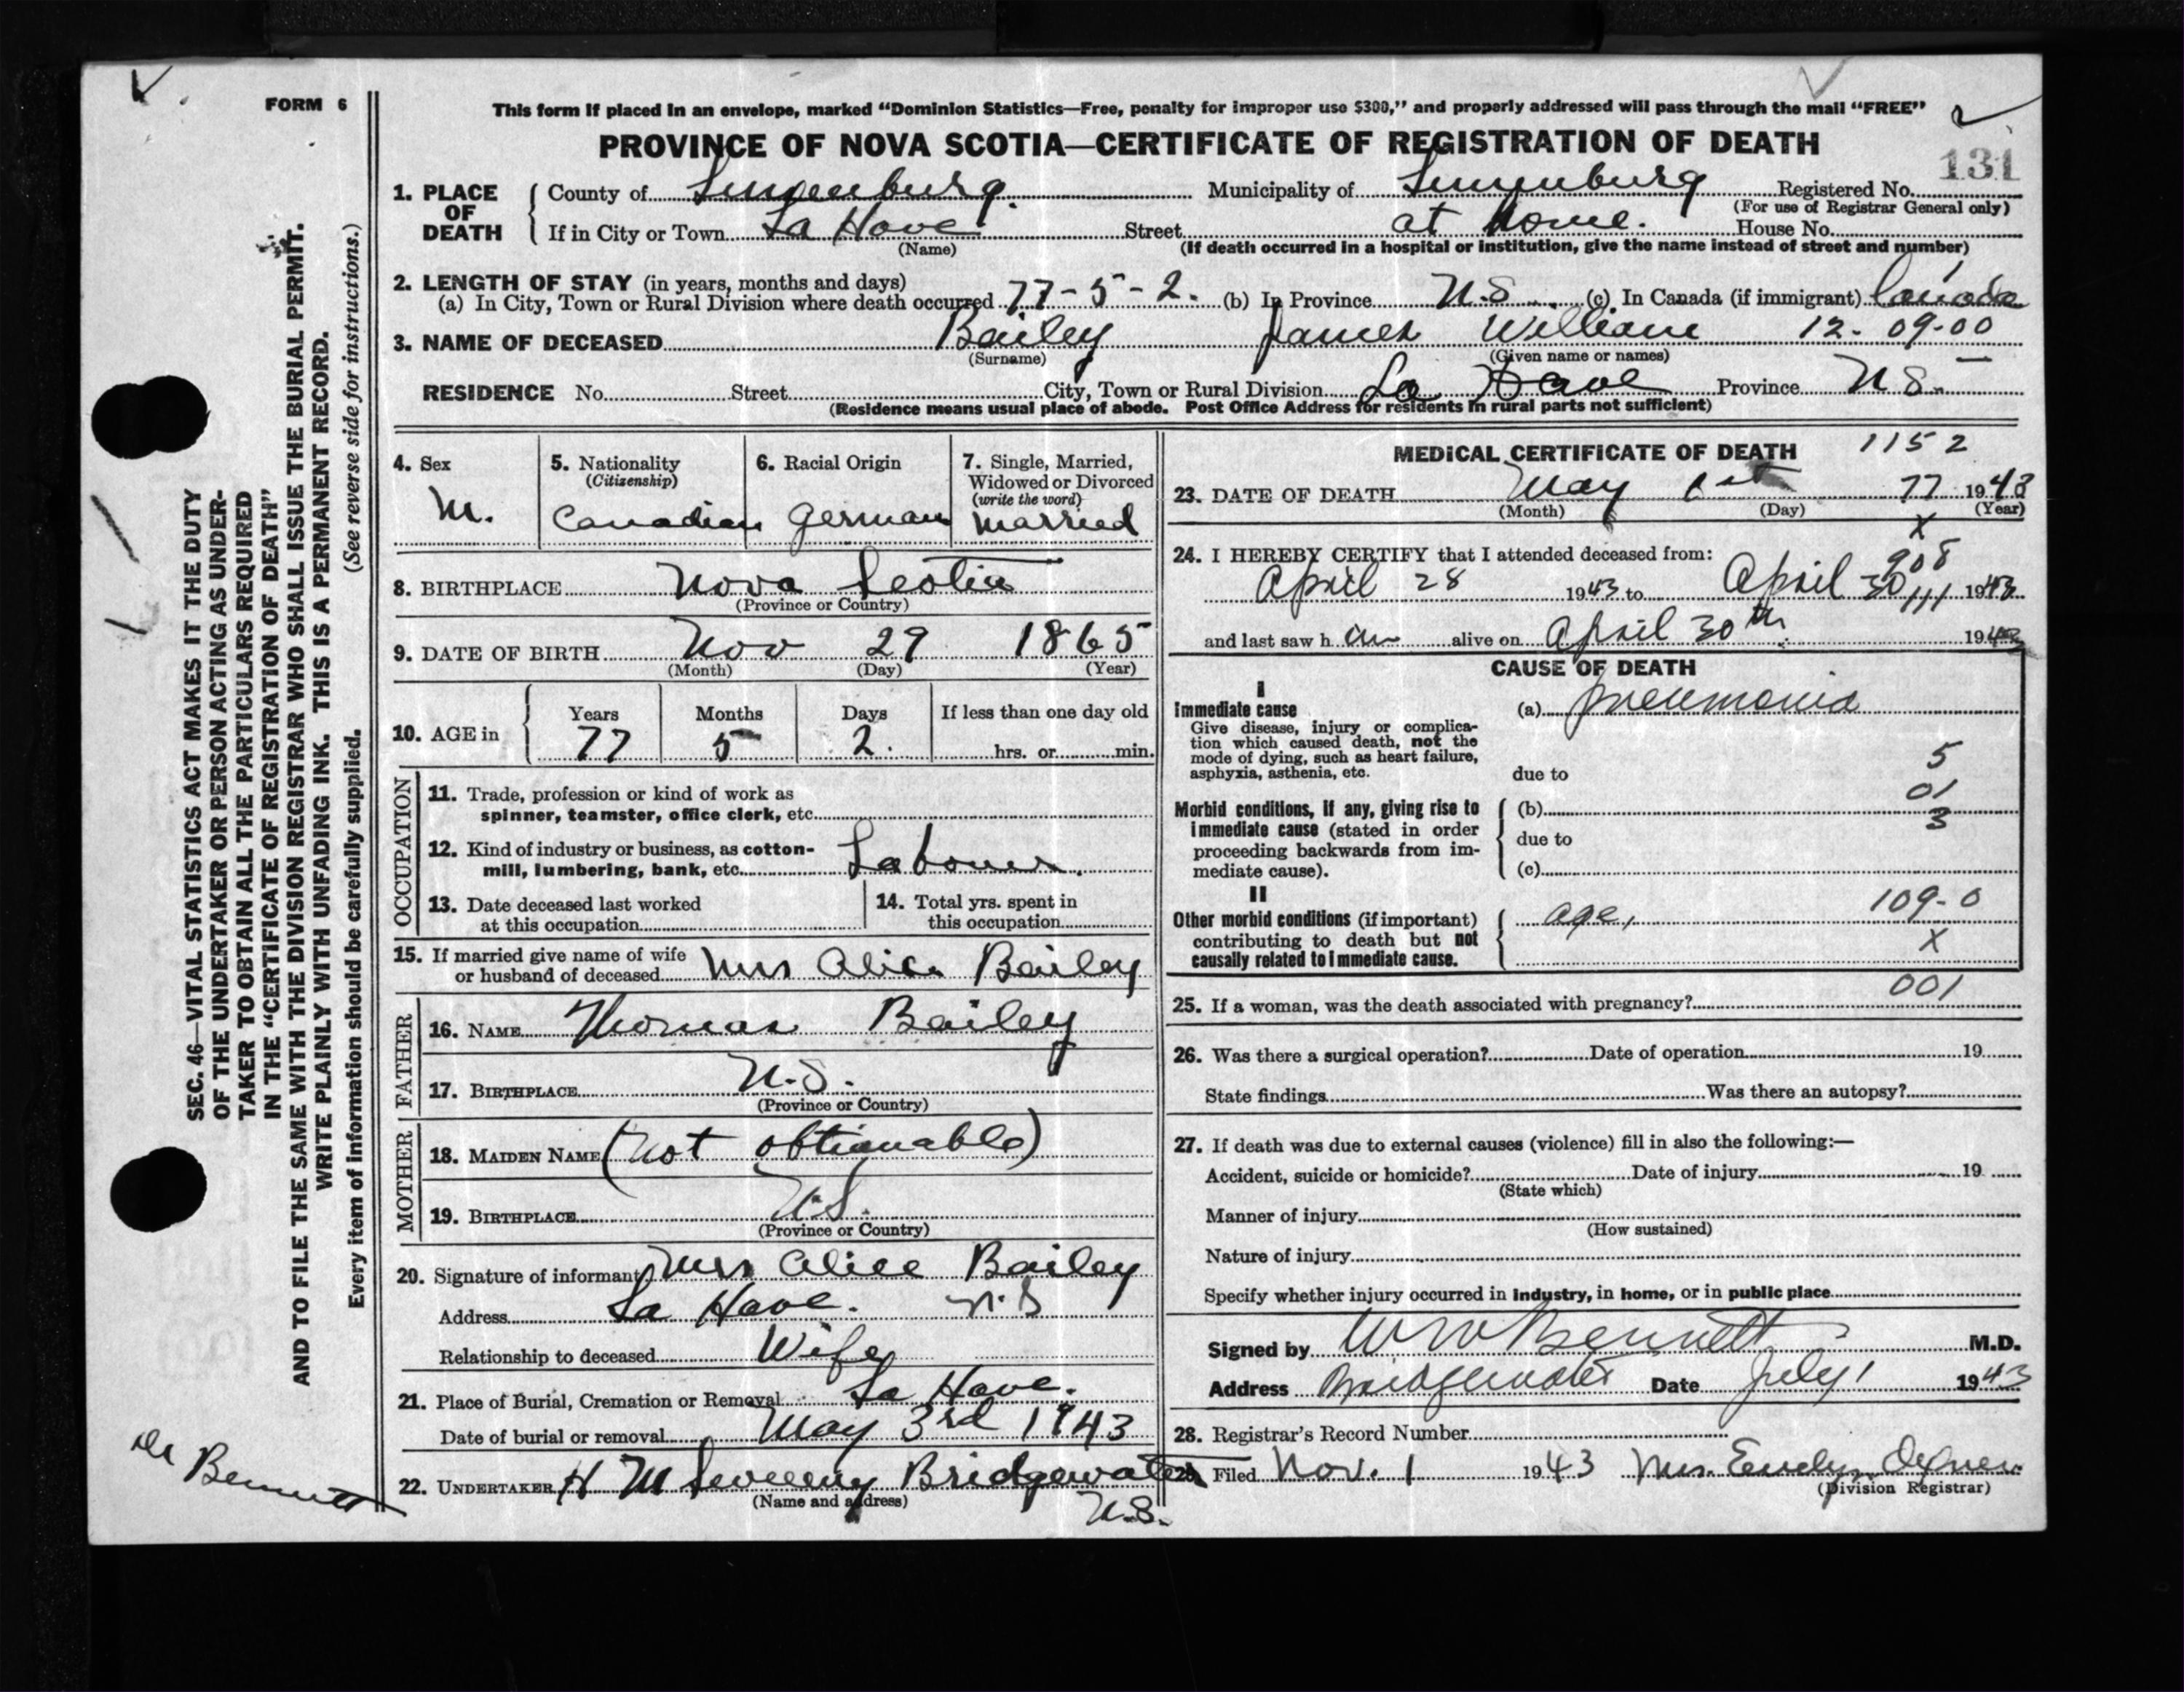 FORM 6
This form if placed in an envelope, marked “Dominion Statistics—Free, penalty for improper use $300,” and properly addressed will pass through the mail “FREE”
PROVINCE OF NOVA SCOTIA—CERTIFICATE OF REGISTRATION OF DEATH
131
1. PLACE OF DEATH County of Lunenburg. Municipality of Lunenburg Registered No.
(For use of Registrar General only)
If in City or Town La Have Street at home. House No.
(Name) (If death occurred in a hospital or institution, give the name instead of street and number)
2. LENGTH OF STAY (in years, months and days)
(a) In City, Town or Rural Division where death occurred 77-5-2. (b) In Province N.S. (c) In Canada (if immigrant) Canada
3. NAME OF DECEASED Bailey James William 12-09-00
(Surname) (Given name or names)
RESIDENCE No. Street City, Town or Rural Division La Have Province N S.
(Residence means usual place of abode. Post Office Address for residents in rural parts not sufficient)
4. Sex M.
5. Nationality (Citizenship) Canadian
6. Racial Origin German
7. Single, Married, Widowed or Divorced (write the word) married
8. BIRTHPLACE Nova Scotia
(Province or Country)
9. DATE OF BIRTH Nov 29 1865
(Month) (Day) (Year)
10. AGE in Years Months Days If less than one day old
77 5 2. hrs. or min.
OCCUPATION
11. Trade, profession or kind of work as
spinner, teamster, office clerk, etc.
12. Kind of industry or business, as cotton-
mill, lumbering, bank, etc. Labourer.
13. Date deceased last worked
at this occupation
14. Total yrs. spent in
this occupation
15. If married give name of wife
or husband of deceased Mrs Alice Bailey
FATHER
16. NAME Thomas Bailey
17. BIRTHPLACE N.S.
(Province or Country)
MOTHER
18. MAIDEN NAME (not obtianable)
19. BIRTHPLACE N.S.
(Province or Country)
20. Signature of informant Mrs Alice Bailey
Address La Have. N.S
Relationship to deceased Wife
21. Place of Burial, Cremation or Removal La Have.
Date of burial or removal May 3rd 1943
22. UNDERTAKER H M Sweeny Bridgewater
(Name and address)
N.S.
MEDICAL CERTIFICATE OF DEATH 1152
23. DATE OF DEATH May 1st 77 1943
(Month) (Day) (Year)
x
24. I HEREBY CERTIFY that I attended deceased from:
908
April 28 1943 to April 30 111 1943
and last saw h im alive on April 30th 1943
CAUSE OF DEATH
I
Immediate cause (a) pneumonia
Give disease, injury or complica-
tion which caused death, not the
mode of dying, such as heart failure,
asphyxia, asthenia, etc. due to 5
01
Morbid conditions, if any, giving rise to (b)
immediate cause (stated in order due to 3
proceeding backwards from im-
mediate cause). (c)
II
Other morbid conditions (if important) age, 109-0
contributing to death but not x
causally related to immediate cause.
001
25. If a woman, was the death associated with pregnancy?
26. Was there a surgical operation? Date of operation 19
State findings Was there an autopsy?
27. If death was due to external causes (violence) fill in also the following:—
Accident, suicide or homicide? Date of injury 19
(State which)
Manner of injury
(How sustained)
Nature of injury
Specify whether injury occurred in industry, in home, or in public place
Signed by W W Bennett M.D.
Address Bridgewater Date July 1 1943
28. Registrar's Record Number
29. Filed Nov. 1 1943 Mrs. Evelyn
(Division Registrar)
SEC. 46—VITAL STATISTICS ACT MAKES IT THE DUTY
OF THE UNDERTAKER OR PERSON ACTING AS UNDER-
TAKER TO OBTAIN ALL THE PARTICULARS REQUIRED
IN THE “CERTIFICATE OF REGISTRATION OF DEATH”
AND TO FILE THE SAME WITH THE DIVISION REGISTRAR WHO SHALL ISSUE THE BURIAL PERMIT.
WRITE PLAINLY WITH UNFADING INK. THIS IS A PERMANENT RECORD.
Every item of information should be carefully supplied. (See reverse side for instructions.)
Dr Bennett